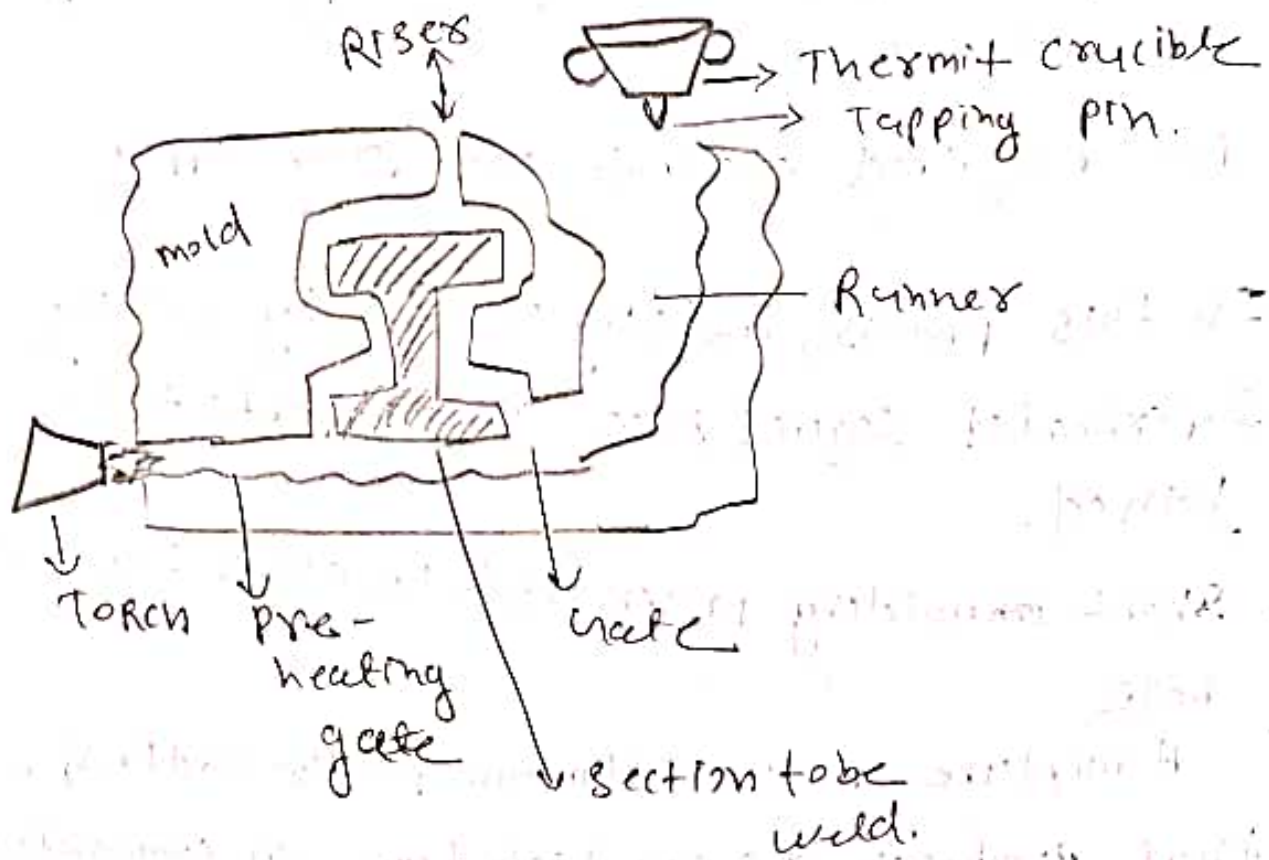 Riser
Thermit crucible
Tapping pin.
mold
Runner
TORCH
pre-
heating
gate
Gate
section to be
weld.